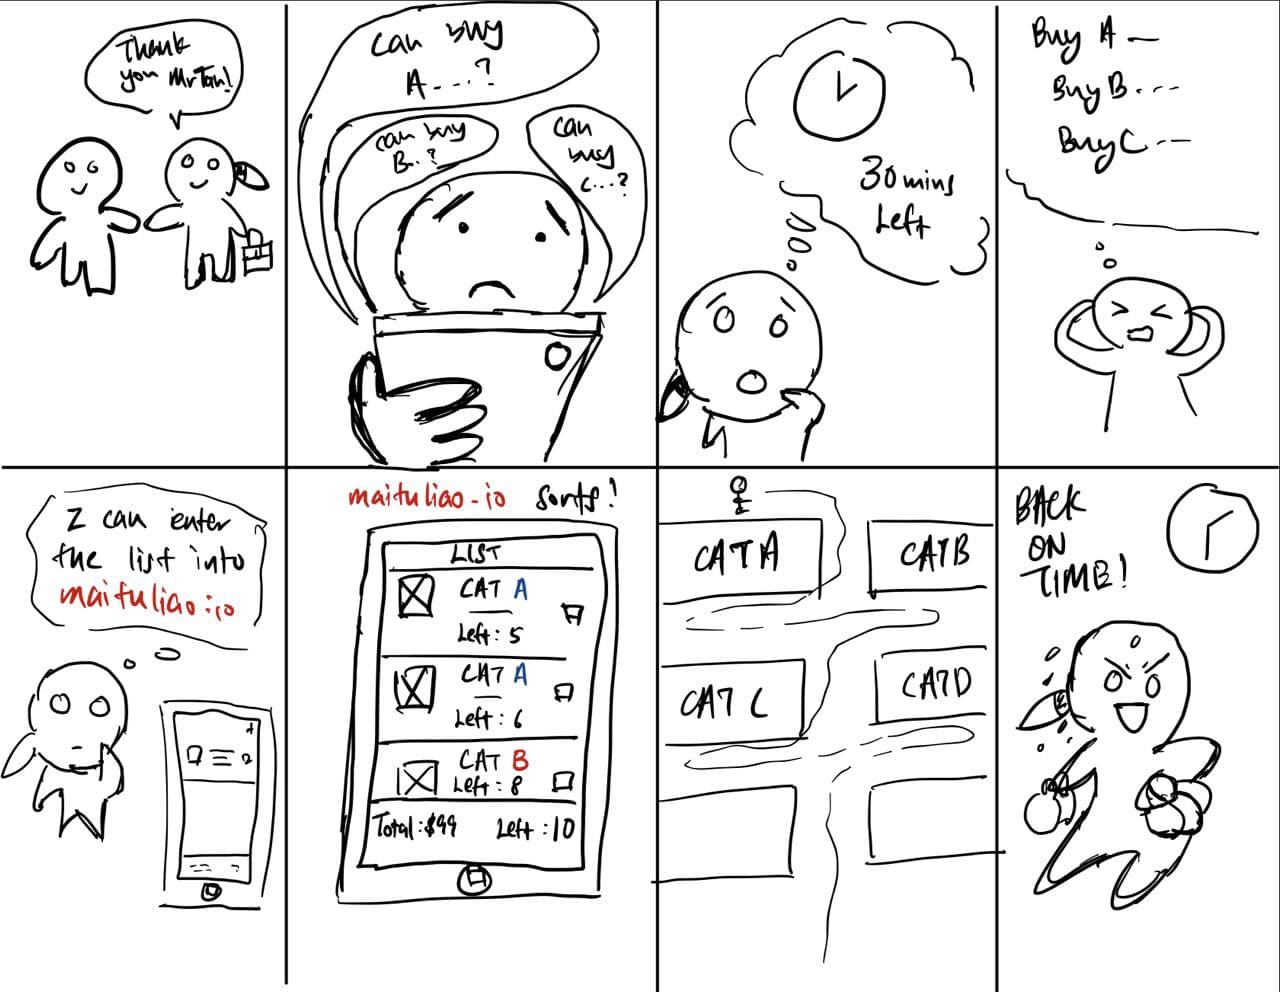 Thank
you Mr Tan!
can buy
A....?
can buy
B..?
can
buy
c...?
30 mins
Left
Buy A —
Buy B....
Buy C...
I can enter
the list into
maituliao.io
maituliao.io sorts!
LIST
CAT A
Left: 5
CAT A
Left: 6
CAT B
Left: 8
Total: $99 Left: 10
CAT A
CAT B
CAT C
CAT D
BACK
ON
TIME!